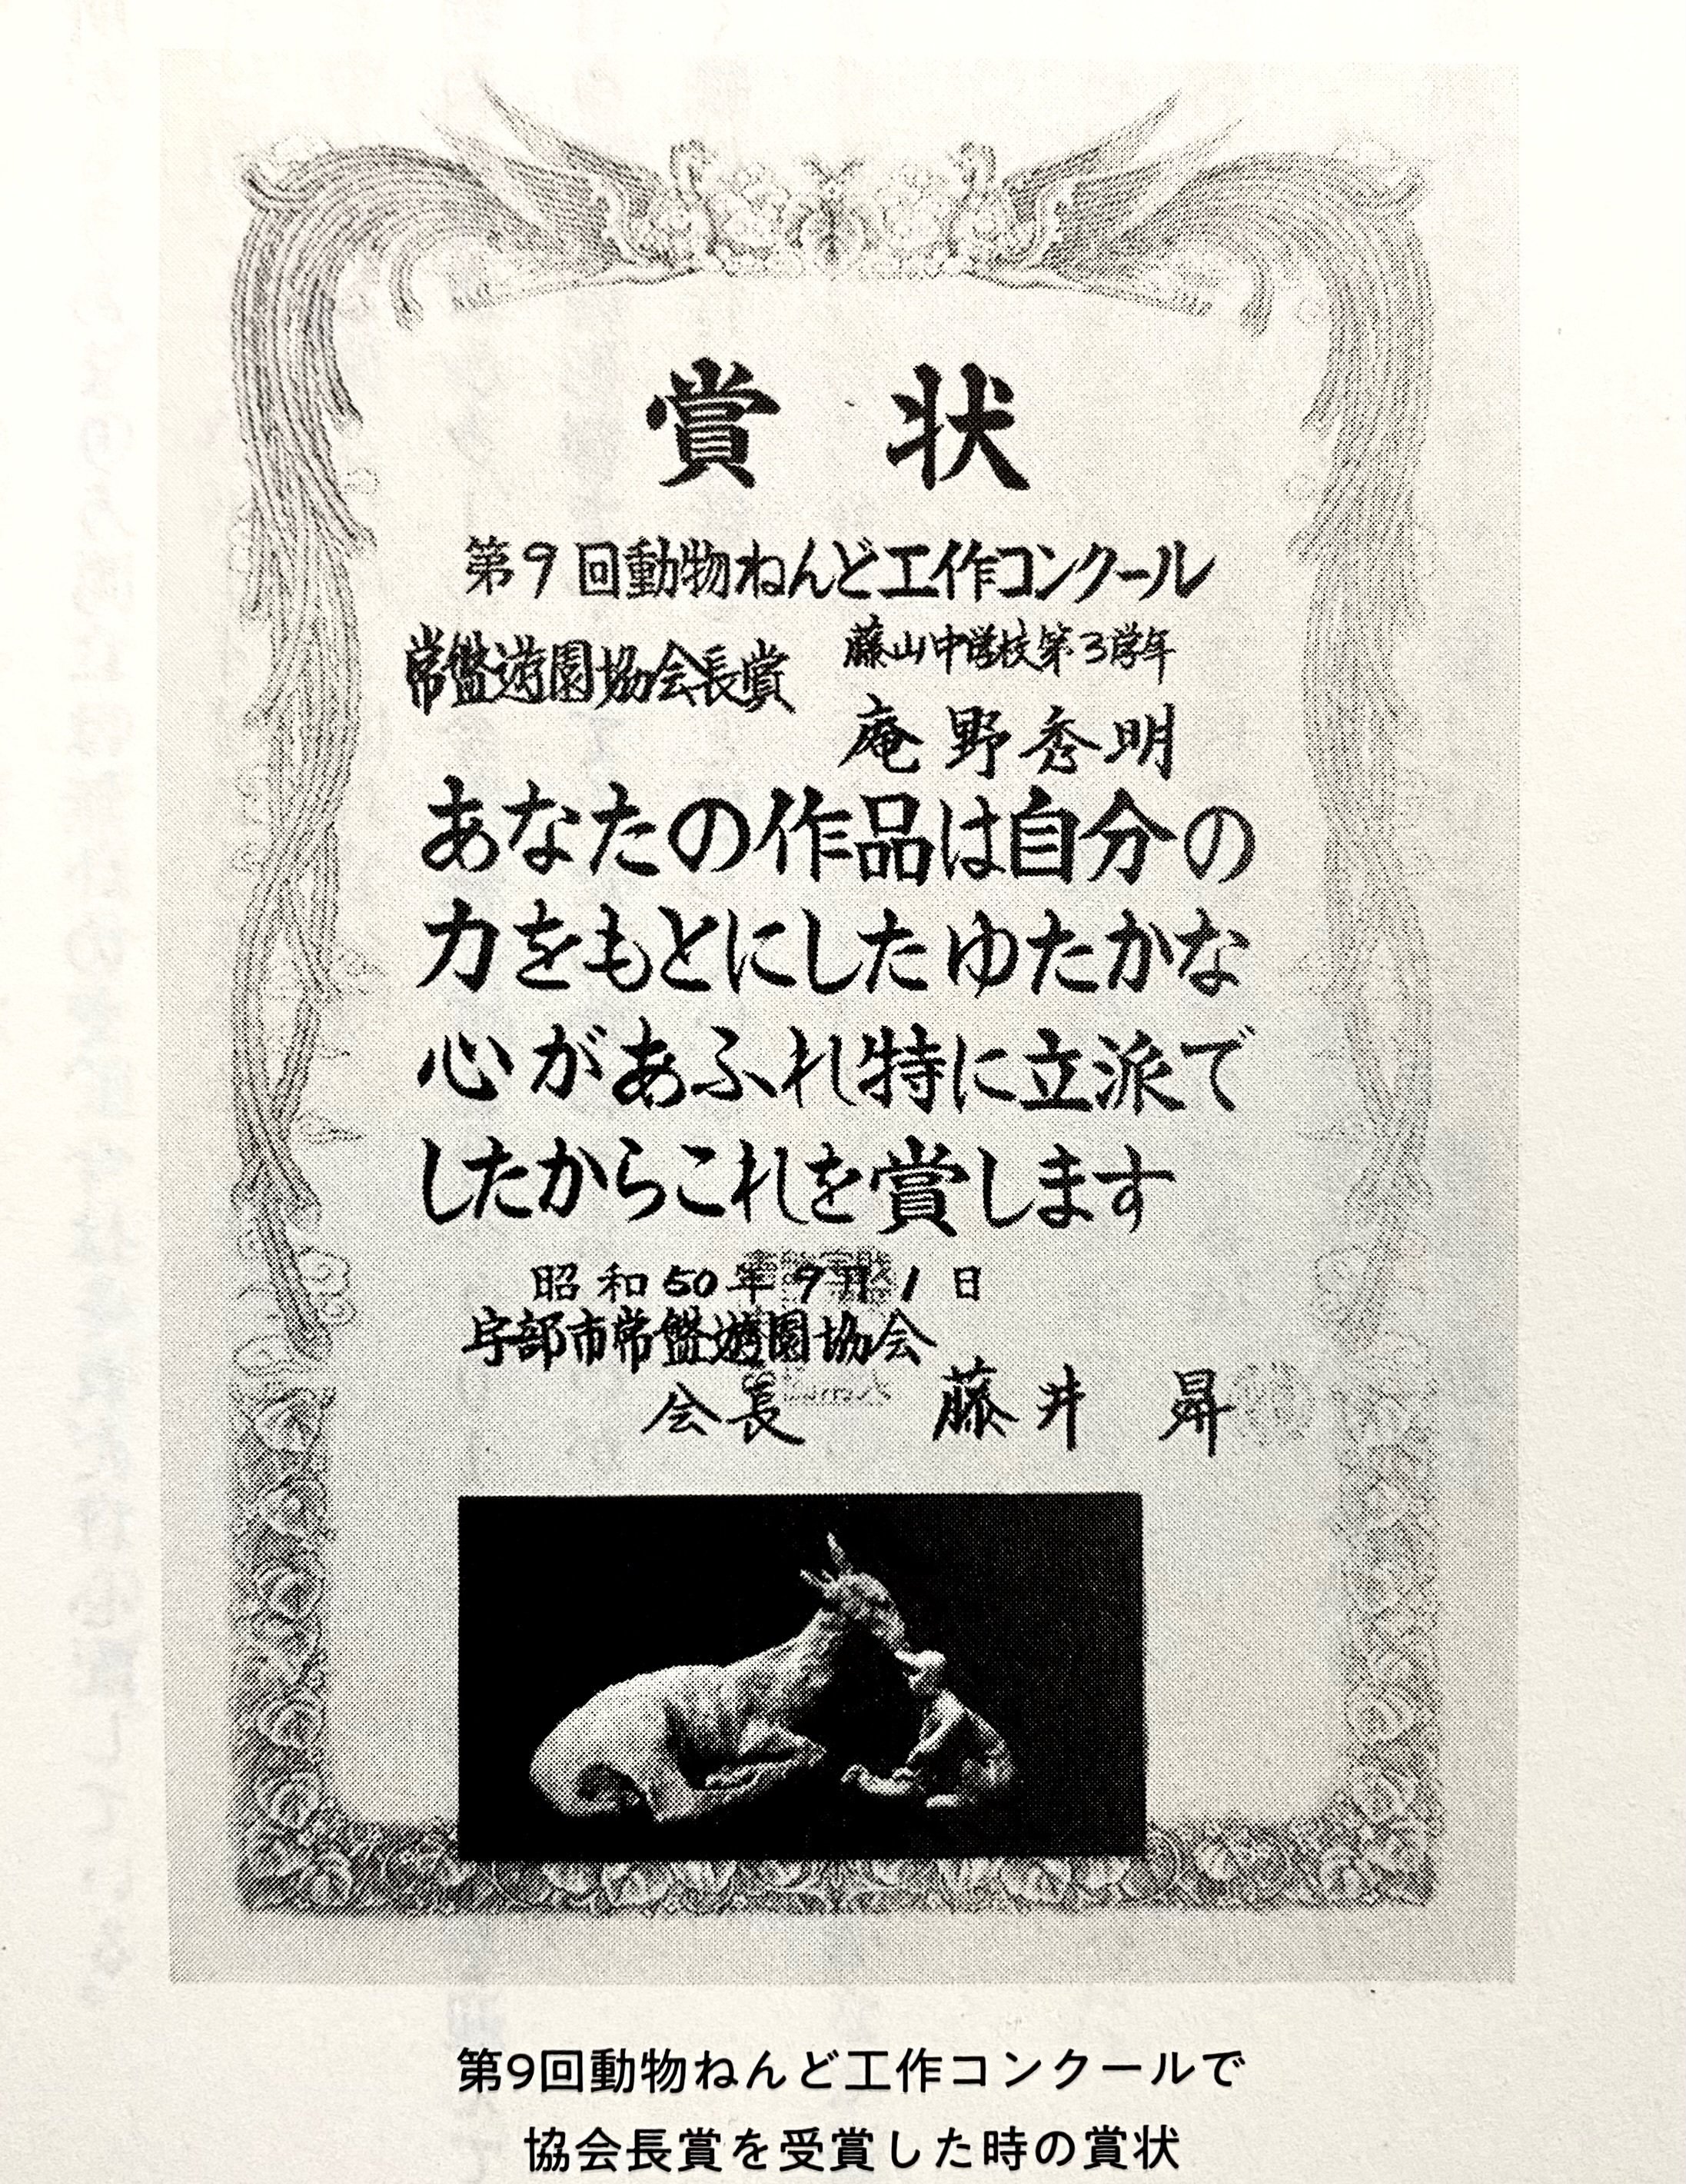 賞状
第9回動物ねんど工作コンクール
常盤遊園協会長賞
藤山中学校第3学年
庵野秀明
あなたの作品は自分の
力をもとにしたゆたかな
心があふれ特に立派で
したからこれを賞します
昭和50年9月1日
宇部市常盤遊園協会
会長 藤井 昇
第9回動物ねんど工作コンクールで
協会長賞を受賞した時の賞状